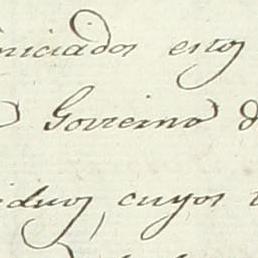 iniciados estos
Govierno d
iduos, cuyos